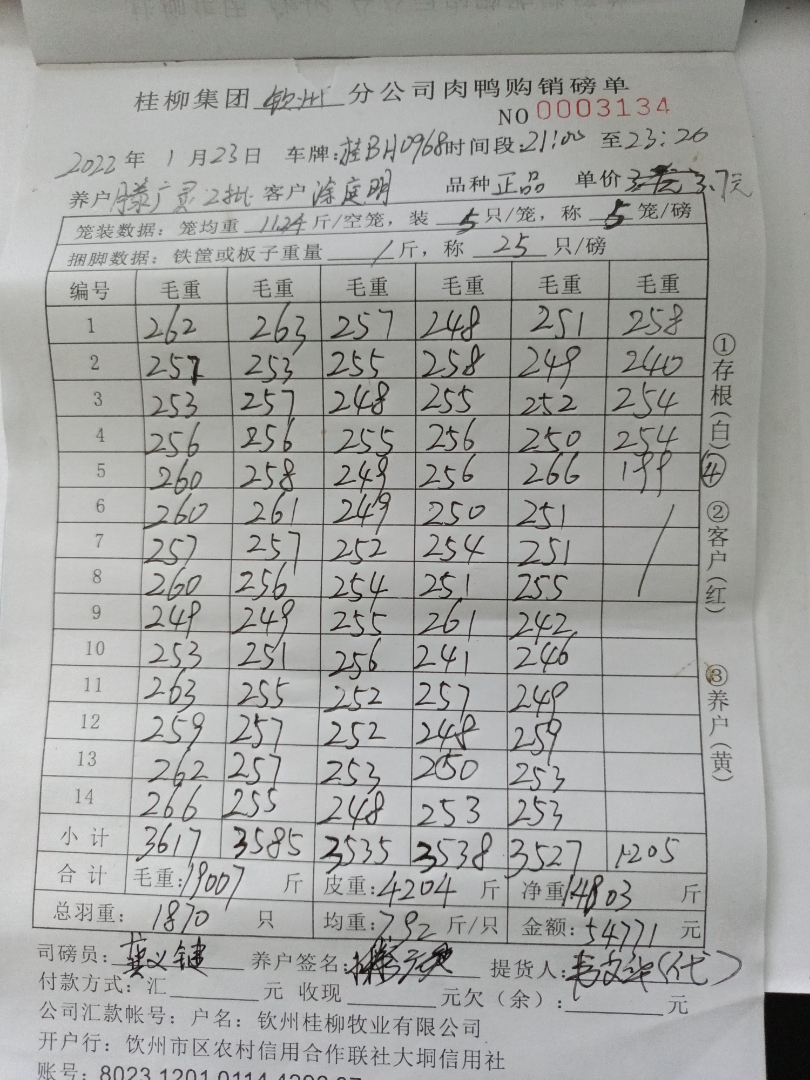 桂柳集团 钦州 分公司肉鸭购销磅单
NO 0003134
2022年 1月23日 车牌:桂BH0968 时间段:21:00 至 23:20
养户 滕广灵2批 客户 涂庭明 品种 正品 单价 3.7元
笼装数据:笼均重 11.24 斤/空笼,装 5 只/笼,称 5 笼/磅
捆脚数据:铁筐或板子重量 / 斤,称 25 只/磅
编号 毛重 毛重 毛重 毛重 毛重 毛重
1 262 263 257 248 251 258
2 257 253 255 258 249 240
3 253 257 248 255 252 254
4 256 256 255 256 250 254
5 260 258 249 256 266 199 ④
6 260 261 249 250 251
7 257 257 252 254 251
8 260 256 254 251 255
9 249 249 255 261 242
10 253 251 256 241 246
11 263 255 252 257 249
12 259 257 252 248 259
13 262 257 253 250 253
14 266 255 248 253 253
小计 3617 3585 3535 3538 3527 1205
合计 毛重:19007 斤 皮重:4204 斤 净重:14803 斤
总羽重: 1870 只 均重:7.92 斤/只 金额:54771 元
司磅员: 养户签名: 提货人: (代)
付款方式:汇 元 收现 元欠(余): 元
公司汇款帐号:户名:钦州桂柳牧业有限公司
开户行:钦州市区农村信用合作联社大垌信用社
账号:8023 1201 0114
①存根(白)
②客户(红)
③养户(黄)